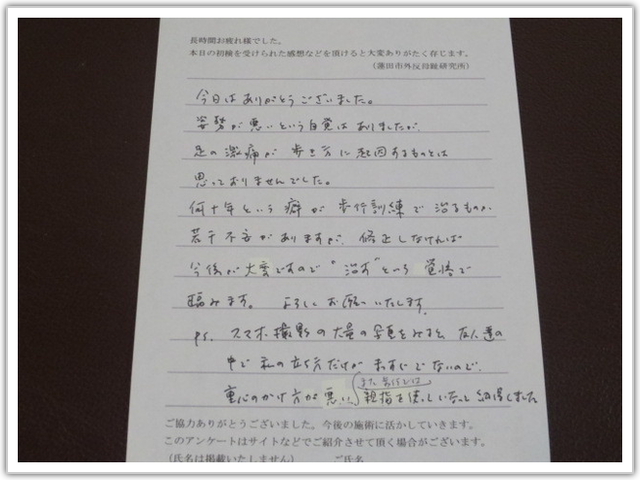 長時間お疲れ様でした。
本日の初検を受けられた感想などを頂けると大変ありがたく存じます。
(蓮田市外反母趾研究所)
今日はありがとうございました。
姿勢が悪いという自覚はありましたが、
足の激痛が歩き方に起因するものとは
思っておりませんでした。
何十年という癖が歩行訓練で治るものか
若干不安がありますが、修正しなければ
今後が大変ですので"治す"という覚悟で
臨みます。よろしくお願いいたします。
PS. スマホ撮影の大量の写真をみると 友人達の
中で私の立ち方だけがまっすぐでないので、
重心のかけ方が悪い、
親指を使っていないなって納得しました
ご協力ありがとうございました。今後の施術に活かしていきます。
このアンケートはサイトなどでご紹介させて頂く場合がございます。
(氏名は掲載いたしません) ご氏名